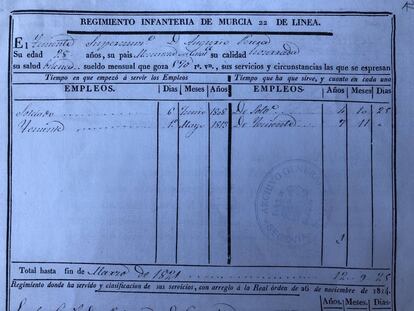 REGIMIENTO INFANTERIA DE MURCIA 22 DE LINEA.
El Teniente Supernum.º D. Gregorio
Su edad 28 años, su pais su calidad honrada
su salud buena sueldo mensual que goza rs. vn., sus servicios y circunstancias las que se expresan
Tiempo en que empezó á servir los Empleos Tiempo que ha que sirve, y cuanto en cada uno
EMPLEOS. Dias Meses Años EMPLEOS. Años Meses Dias
Soldado 6 Junio 1808 De Sold.º 4 10 25
Teniente 1.º Mayo 1813 De Teniente 7 11
ARCHIVO GENERAL
SEGOVIA
Total hasta fin de Marzo de 1821 12 9 25
Regimiento donde ha servido y clasificacion de sus servicios, con arreglo á la Real órden de 26 de noviembre de 1814.
Años. Meses. Dias